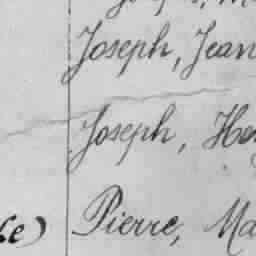 Joseph, Jean
Joseph, He
le) Pierre, Ma